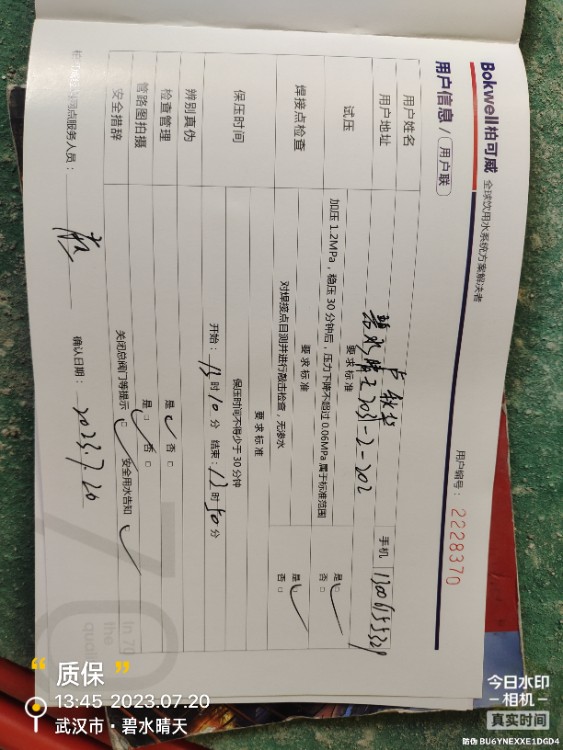 Bokwell柏可威 全球饮用水系统方案解决者
用户信息 / 用户联
用户编号： 2228370
用户姓名
手机
用户地址 碧水晴天2031-2-202
试压
要求标准
加压 1.2MPa，稳压 30 分钟后，压力下降不超过 0.06MPa 属于标准范围
是 否
焊接点检查
要求标准
对焊接点目测并进行敲击检查，无渗水
是 否
保压时间
要求标准
保压时间不得少于 30 分钟
开始： 13 时 10 分 结束： 13 时 50 分
辨别真伪
检查管理 是 否
管路图拍摄 是 否
安全措辞 关闭总阀门等提示 安全用水告知
网点服务人员：
确认日期： 2023.7.20
70
In 70
the
quali
“质保”
13:45 2023.07.20
武汉市·碧水晴天
今日水印
相机
真实时间
防伪 BU6YNEXXE1DGD4